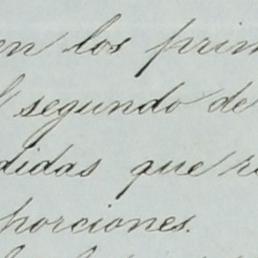 en los prim
segundo de
didas que r
porciones.